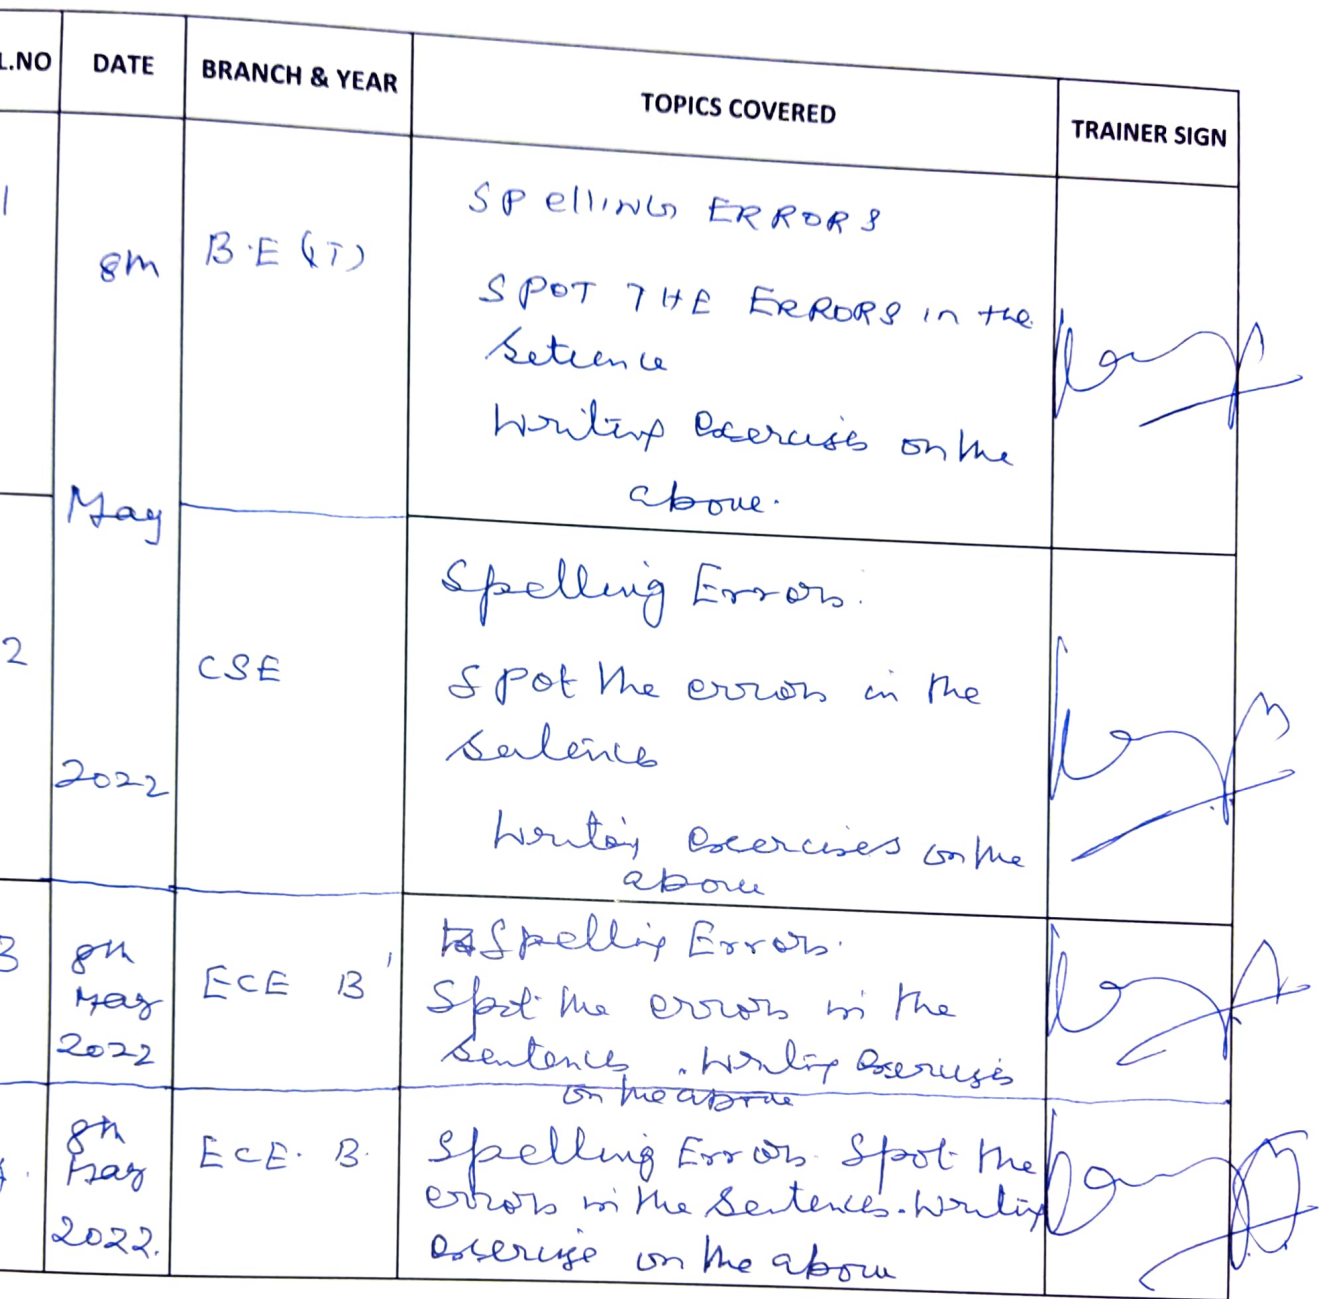 L.NO DATE BRANCH & YEAR TOPICS COVERED TRAINER SIGN
1 8th B.E (IT) SPelling ERRORS
SPOT THE ERRORS in the
setence
Writing exercises on the
above.
May
2022
2 CSE Spelling Errors.
Spot the errors in the
sentence
Writing exercises on the
above
3 8th May 2022 ECE B' Spelling Errors.
Spot the errors in the
sentences. Writing exercises
on the above
8th May 2022. ECE. B. Spelling Errors. Spot the
errors in the sentences. Writing
exercise on the above